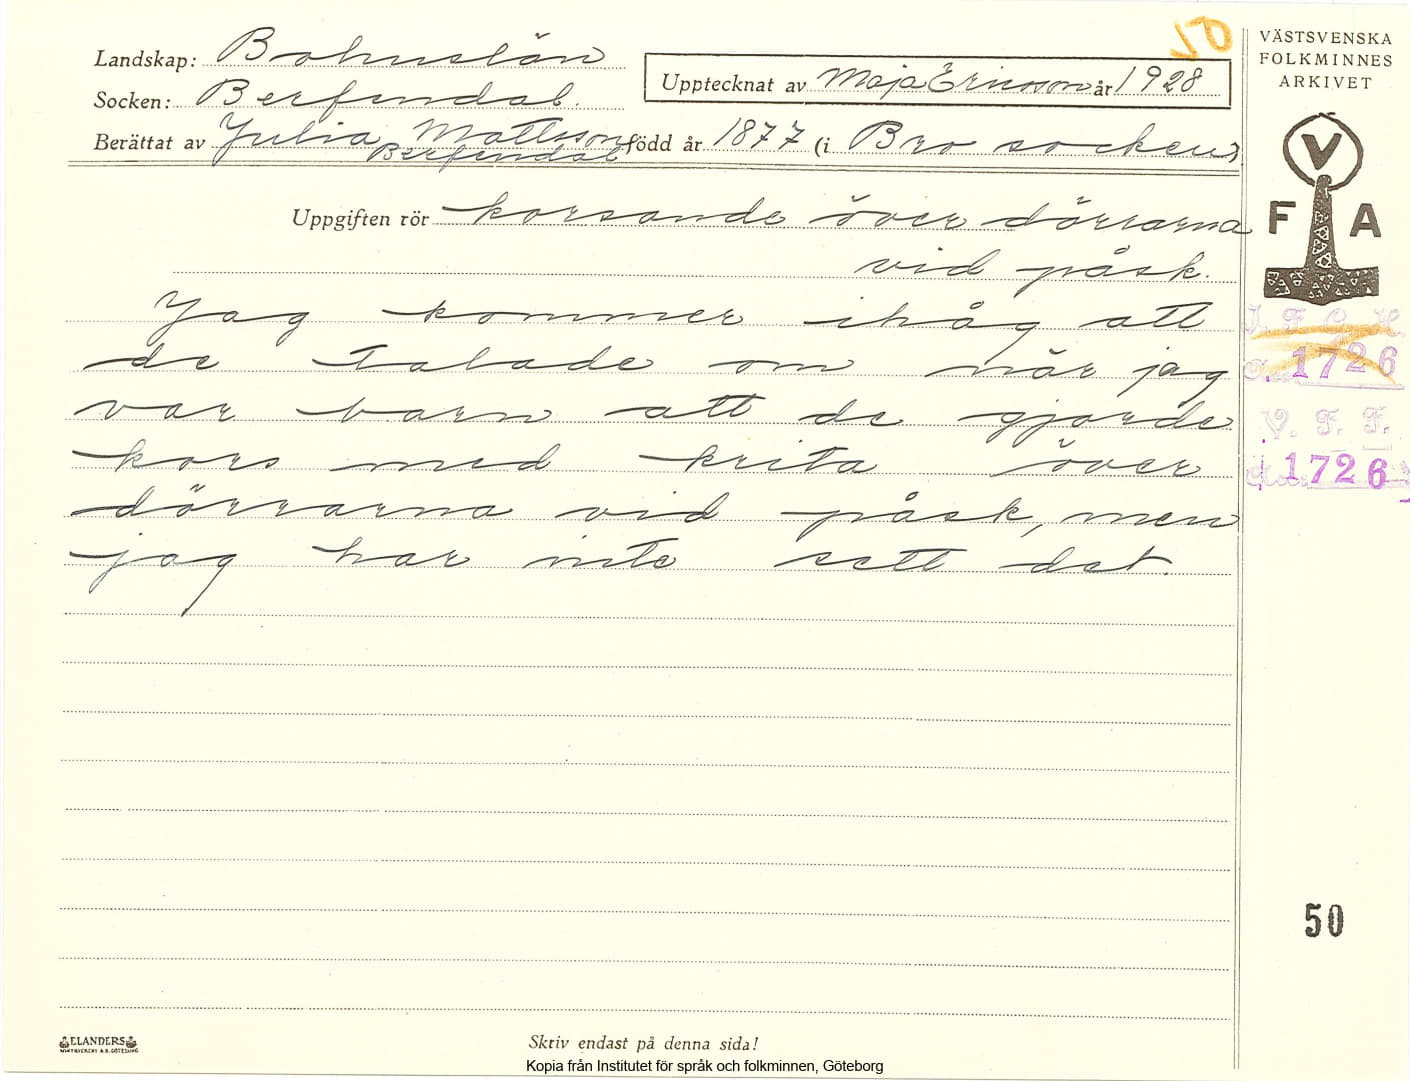 10
VÄSTSVENSKA
FOLKMINNES
ARKIVET
Landskap: Bohuslän
Upptecknat av Maja Ericsson år 1928
Socken: Berfendal.
Berättat av Julia Mattsson född år 1877 (i Bro socken)
Berfendal
Uppgiften rör korsande över dörrarna
vid påsk.
V
F A
Jag kommer ihåg att
de talade om när jag
var barn att de gjorde
kors med krita över
dörrarna vid påsk, men
jag har inte sett det.
I. F. G. H.
1726
V. F. F.
1726
50
ELANDERS
Skriv endast på denna sida!
Kopia från Institutet för språk och folkminnen, Göteborg